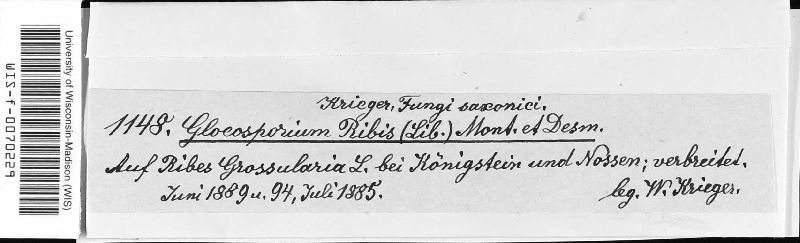 University of Wisconsin-Madison (WIS)
WIS-f-0070229
Krieger, Fungi saxonici.
1148. Gloeosporium Ribis (Lib.) Mont. et Desm.
Auf Ribes Grossularia L. bei Königstein und Nossen; verbreitet.
Juni 1889 u. 94, Juli 1885.
leg. W. Krieger.